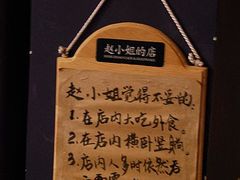 赵小姐的店
赵小姐觉得不妥的:
1.在店内大吃外食.
2.在店内横卧竖躺.
3.店内人多时依然占